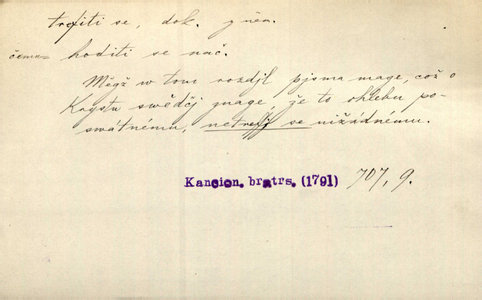 trefiti se, dok. z něm.
čemu = hoditi se nač.
Měgž w tom rozdjl, pjsma mage, což o
Krystu swědčj znage, že to chlebu po-
swátnému, netreffj se nižádnému.
Kancion. bratrs. (1791) 707, 9.